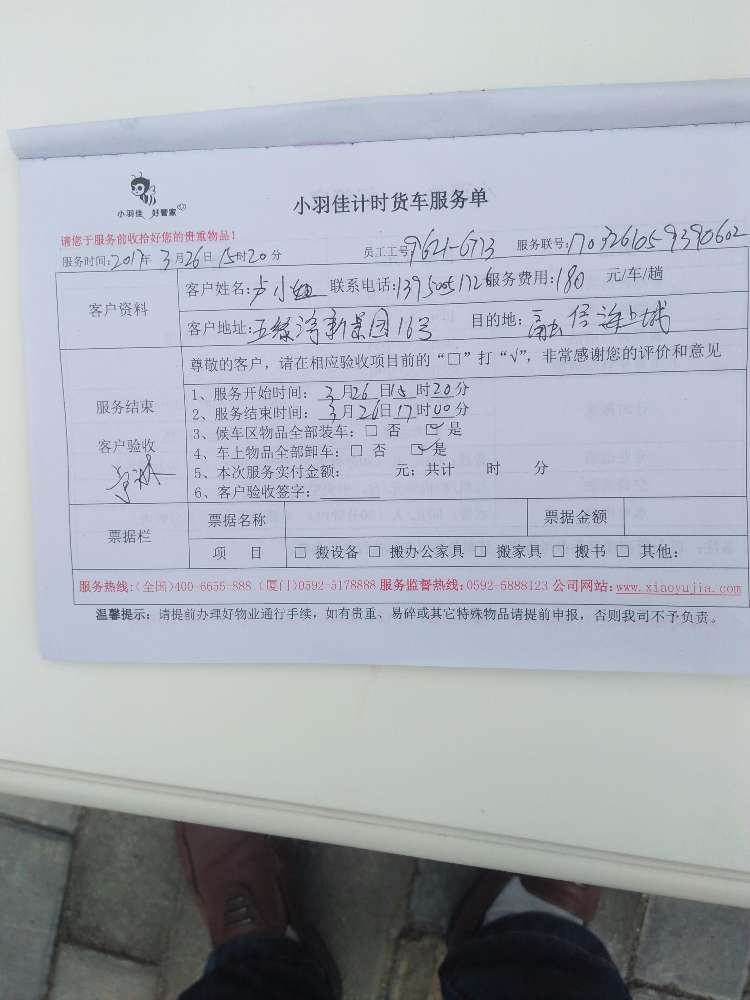 小羽佳 好管家
小羽佳计时货车服务单
请您于服务前收拾好您的贵重物品！
服务时间：2017年 3月26日 15时20分 员工工号9621-6713 服务联号：1703261059390602
客户资料
客户姓名：卢小 联系电话：13950051726 服务费用：180 元/车/趟
客户地址：五缘湾新景园16号 目的地：融信海上城
尊敬的客户，请在相应验收项目前的“□”打“√”，非常感谢您的评价和意见
服务结束
客户验收
1、服务开始时间：3月26日15时20分
2、服务结束时间：3月26日17时00分
3、候车区物品全部装车：□ 否 ☑是
4、车上物品全部卸车：□ 否 ☑是
5、本次服务实付金额： 元；共计 时 分
6、客户验收签字：
票据栏
票据名称 票据金额
项 目 □ 搬设备 □ 搬办公家具 □ 搬家具 □ 搬书 □ 其他：
服务热线：(全国)400-6655-888 (厦门)0592-5178888 服务监督热线：0592-5888123 公司网站：www.xiaoyujia.com
温馨提示：请提前办理好物业通行手续，如有贵重、易碎或其它特殊物品请提前申报，否则我司不予负责。